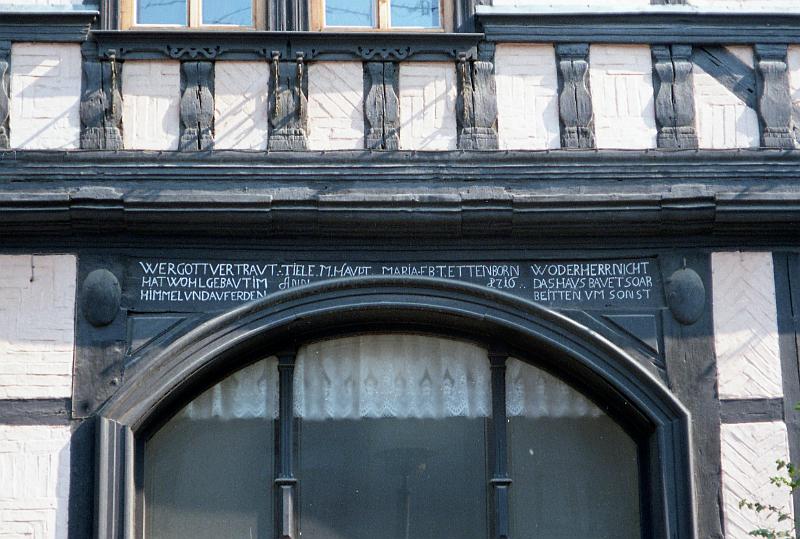 WER GOTT VERTRAVT. TIELE. M. HAVPT MARIA. F. B. T. ETTENBORN WO DER HERR NICHT
HAT WOHL GEBAVT IM ANN 1716 .. DAS HAVS BAVET SO AR
HIMMEL UND AVF ERDEN BEITTEN VM SONST